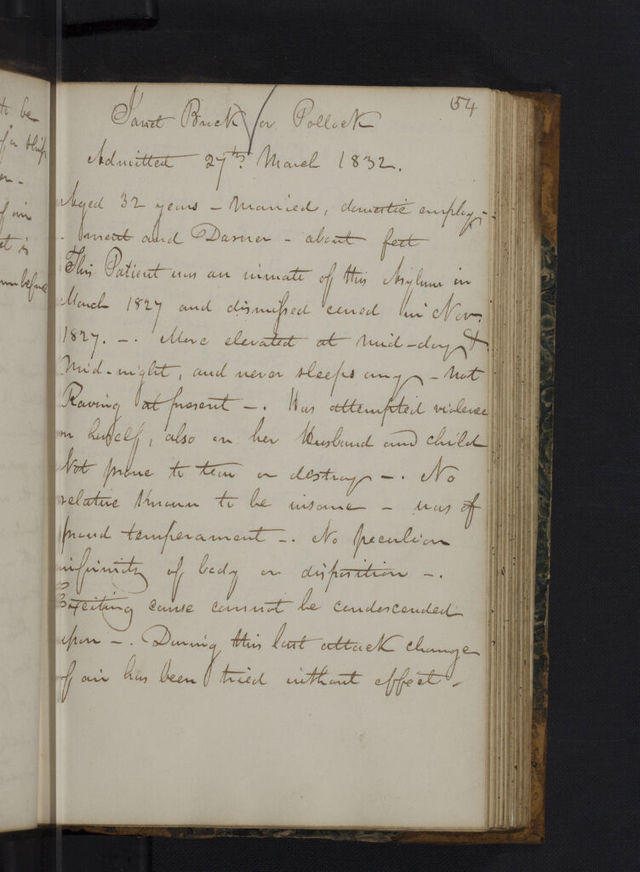 to be
of a ship
54
Janet Buick or Pollock
Admitted 27th March 1832.
Aged 32 years – Married, domestic employ-
- ment and Darner – about feet
This Patient was an inmate of this Asylum in
March 1827 and dismissed cured in Nov.
1827. –. More elevated at mid-day &
Mid-night, and never sleeps any – not
Raving at present –. Has attempted violence
on herself, also on her Husband and child
Not prone to tear or destroy –. No
relative known to be insane – was of
proud temperament –. No peculiar
infirmity of body or disposition –.
Exciting cause cannot be condescended
upon –. During this last attack change
of air has been tried without effect –